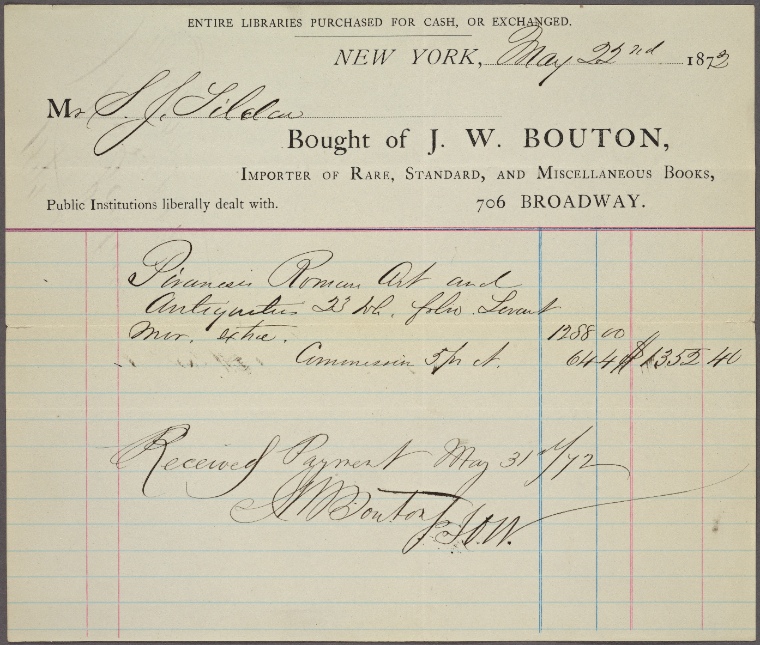 ENTIRE LIBRARIES PURCHASED FOR CASH, OR EXCHANGED.
NEW YORK, May 22nd 1872
Mr S. J. Tilden
Bought of J. W. BOUTON,
IMPORTER OF RARE, STANDARD, AND MISCELLANEOUS BOOKS,
Public Institutions liberally dealt with. 706 BROADWAY.
Piranesis Roman Art and
Antiquities 23 vols. folio. Levant
Mor. extra. 1288 00
Commission 5 pr ct. 64 40 $1352 40
Received Payment May 31st/72
J W Bouton